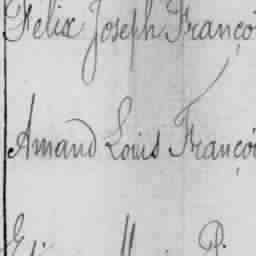 Felix Joseph Franço
Amand Louis Françoi